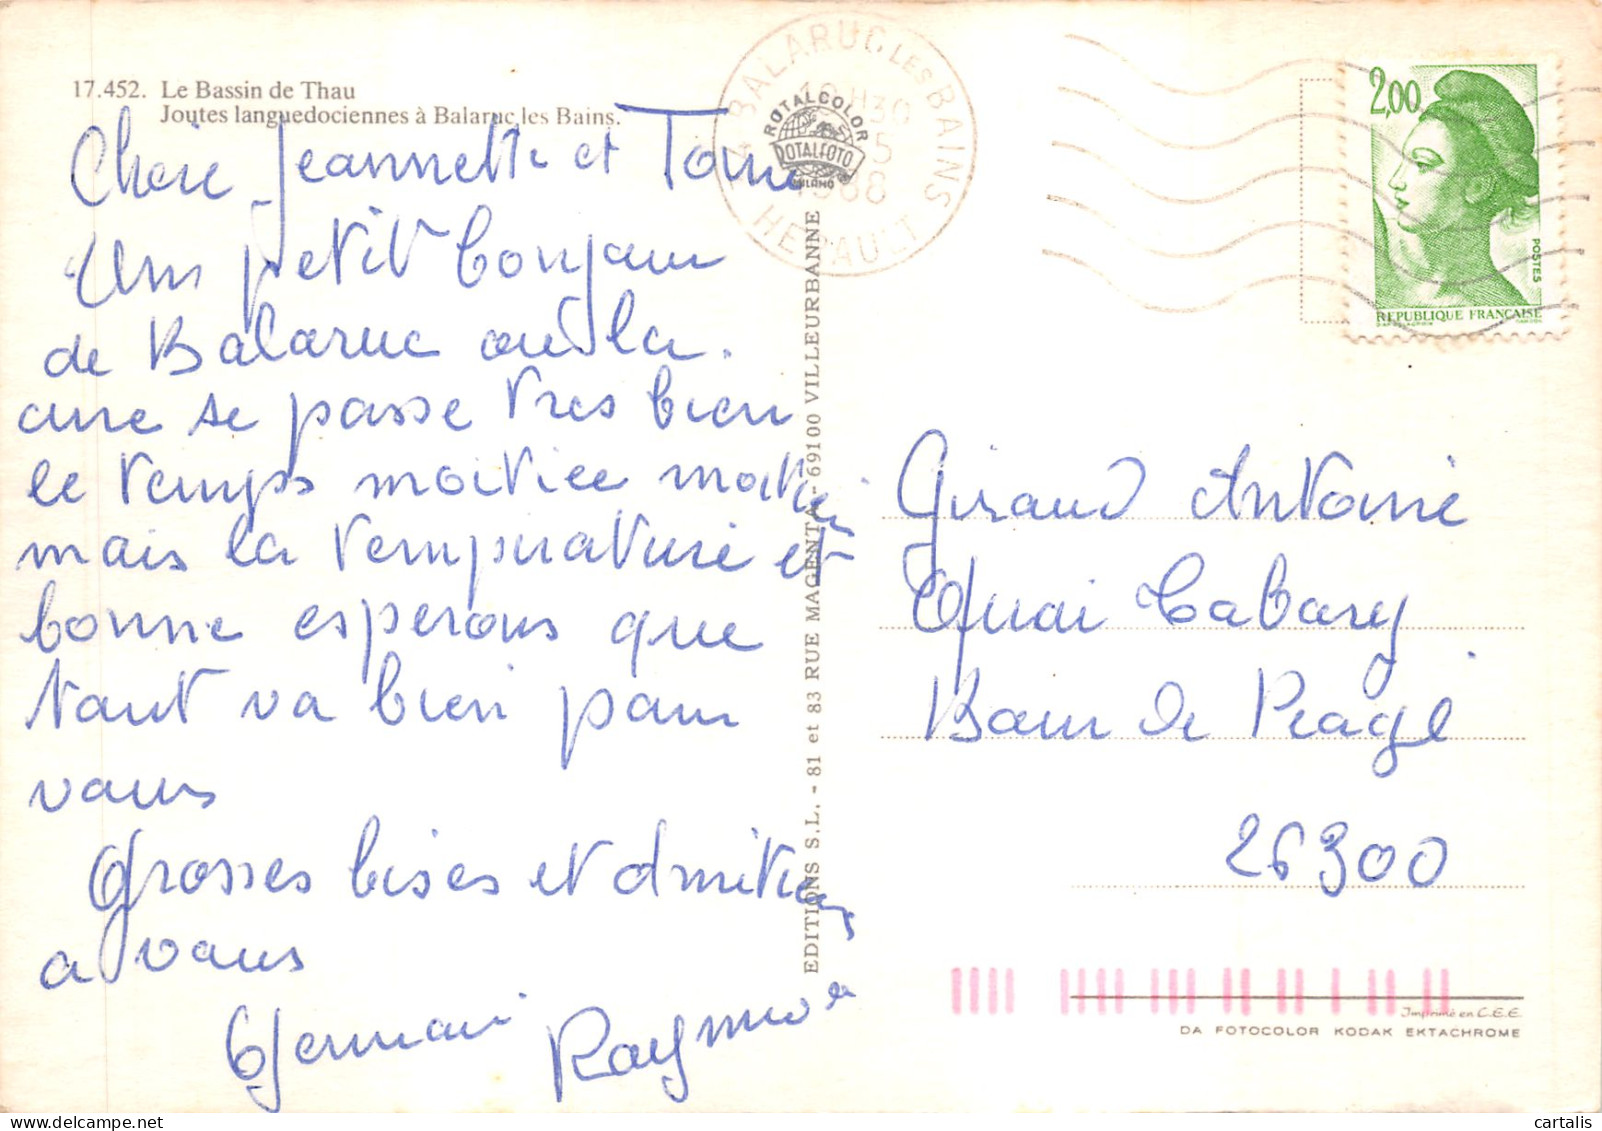 17.452. Le Bassin de Thau
Joutes languedociennes à Balaruc les Bains.
Chere Jeannette et Toni
Un petit bonjour
de Balaruc ou la
cure se passe tres bien
le temps moitiee moitiee
mais la temperature et
bonne esperons que
tout va bien pour
vous
Grosses bises et amities
a vous
Germain Raymonde
BALARUC LES BAINS
10H30
5
1988
HERAULT
ROTALCOLOR
ROTALFOTO
MILANO
EDITIONS S.L. - 81 et 83 RUE MAGENTA - 69100 VILLEURBANNE
2,00
POSTES
REPUBLIQUE FRANÇAISE
Giraud Antoine
Quai Tabary
Bour de Peage
26300
Imprimé en C.E.E.
DA FOTOCOLOR KODAK EKTACHROME
cartalis